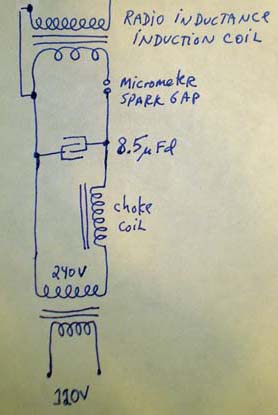 RADIO INDUCTANCE
INDUCTION COIL
MICROMETER
SPARK GAP
8.5µFd
choke
coil
240V
110V